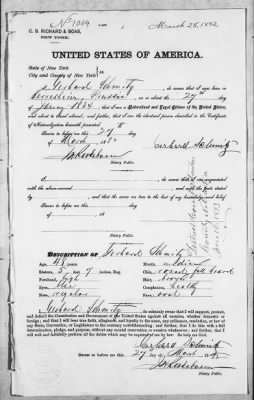 No 7004
March 28, 1882
C. B. RICHARD & BOAS,
NEW YORK.
UNITED STATES OF AMERICA.
State of New York
City and County of New York
I, Gerhard Schmitz, do swear that I was born in
Prussia, on or about the 27th day
of 1834, that I am a Naturalized and Loyal Citizen of the United States,
and about to travel abroad, and further, that I am the identical person described in the Certificate
of Naturalization herewith presented.
Sworn to before me this 27
of March 1882
Gerhard Schmitz
Notary Public.
I, do swear that I am acquainted
with the above-named and with the facts stated
by and that the same are true to the best of my knowledge and belief.
Sworn to before me this
of
Notary Public.
DESCRIPTION OF Gerhard Schmitz
Age, 48 years
Mouth, medium
Stature, 5 feet 7 inches, Eng.
Chin, covered full beard
Forehead, high
Hair, brown
Eyes, blue
Complexion, healthy
Nose, regular
Face, oval
I, Gerhard Schmitz, do solemnly swear that I will support, protect,
and defend the Constitution and Government of the United States against all enemies, whether domestic or
foreign; and that I will bear true faith, allegiance, and loyalty to the same, any ordinance, resolution, or law of
any State, Convention, or Legislature to the contrary notwithstanding; and further, that I do this with a full
determination, pledge, and purpose, without any mental reservation or evasion whatsoever; and further, that I
will well and faithfully perform all the duties which may be required of me by law. So help me God.
Gerhard Schmitz
Sworn to before me, this
27 of March 1882
Notary Public.